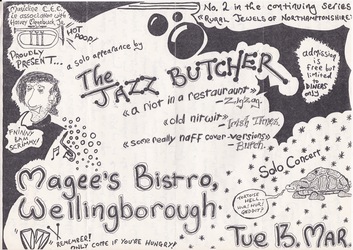 Musiclise C.E.C.
in association with
Harvey Clampback Jr.
PROUDLY
PRESENT...
HOT
POOP!
No. 2 in the continuing series
"RURAL JEWELS OF NORTHAMPTONSHIRE"
a solo appearance by
The JAZZ BUTCHER
admission
is free
but limited
to DINERS
only
«a riot in a restauraunt»
- ZigZag.
«old nitwit» - Irish Times.
«some really naff cover-versions»
- Butch.
Solo Concert
Magee's Bistro,
Wellingborough.
TORTOISE
HELL..
GEDDIT?
Tue 13. MAR
REMEMBER!
ONLY COME IF YOU'RE HUNGRY!